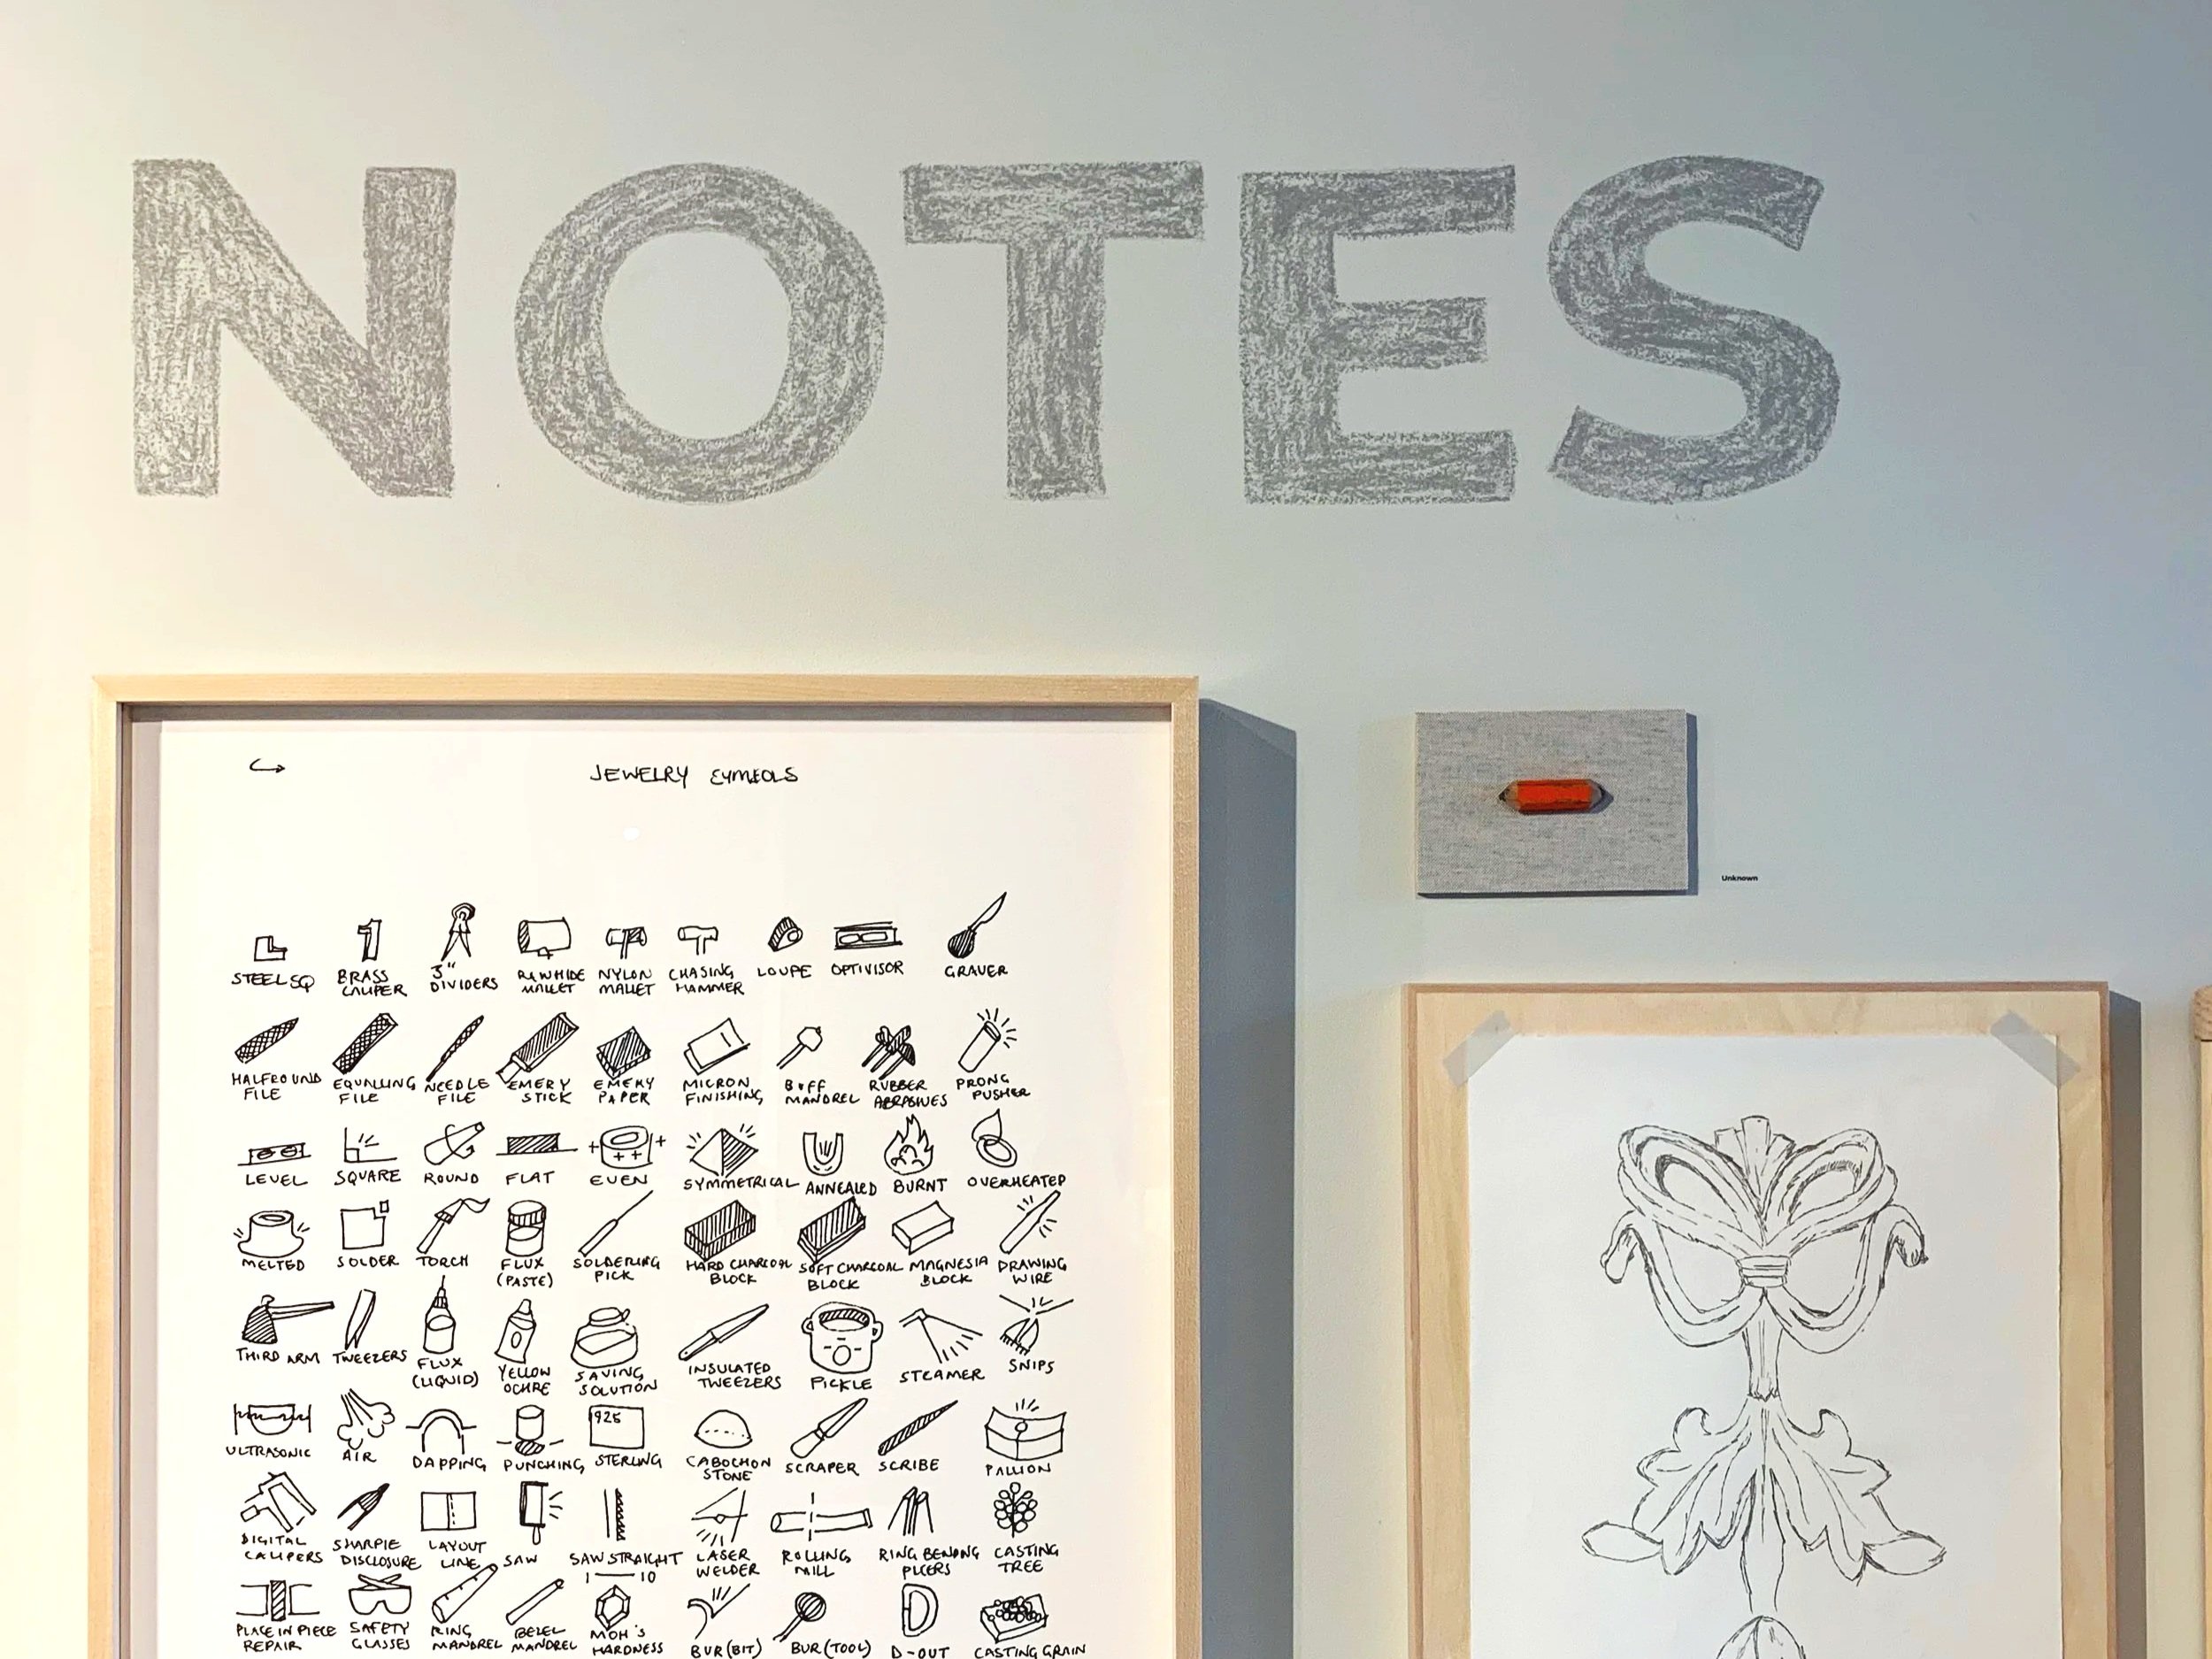 NOTES
JEWELRY SYMBOLS
STEEL SQ
BRASS CALIPER
3" DIVIDERS
RAWHIDE MALLET
NYLON MALLET
CHASING HAMMER
LOUPE
OPTIVISOR
GRAVER
HALFROUND FILE
EQUALLING FILE
NEEDLE FILE
EMERY STICK
EMERY PAPER
MICRON FINISHING
BUFF MANDREL
RUBBER ABRASIVES
PRONG PUSHER
LEVEL
SQUARE
ROUND
FLAT
EVEN
SYMMETRICAL
ANNEALED
BURNT
OVERHEATED
MELTED
SOLDER
TORCH
FLUX (PASTE)
SOLDERING PICK
HARD CHARCOAL BLOCK
SOFT CHARCOAL BLOCK
MAGNESIA BLOCK
DRAWING WIRE
THIRD ARM
TWEEZERS
FLUX (LIQUID)
YELLOW OCHRE
SAVING SOLUTION
INSULATED TWEEZERS
PICKLE
STEAMER
SNIPS
ULTRASONIC
AIR
DAPPING
PUNCHING
925
STERLING
CABOCHON STONE
SCRAPER
SCRIBE
PALLION
DIGITAL CALIPERS
SHARPIE DISCLOSURE
LAYOUT LINE
SAW
SAW STRAIGHT
LASER WELDER
ROLLING MILL
RING BENDING PLIERS
CASTING TREE
PLACE IN PIECE REPAIR
SAFETY GLASSES
RING MANDREL
BEZEL MANDREL
1 — 10
MOH'S HARDNESS
BUR (BIT)
BUR (TOOL)
D-OUT
CASTING GRAIN
Unknown